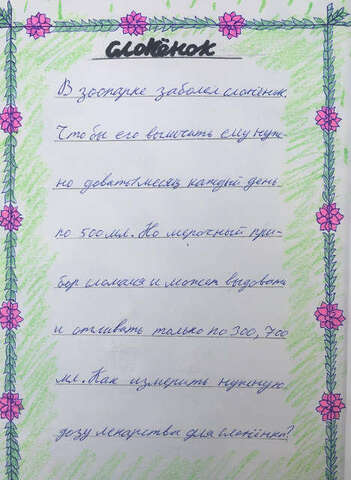 СЛОНЁНОК
В зоопарке заболел слонёнок.
Что бы его вылечить ему нуж-
но довать 1 месяц каждый день
по 500 мл. Но мерочный при-
бор сломался и может выдовать
и отливать только по 300, 700
мл. Как измерить нужную
дозу лекарства для слонёнка?